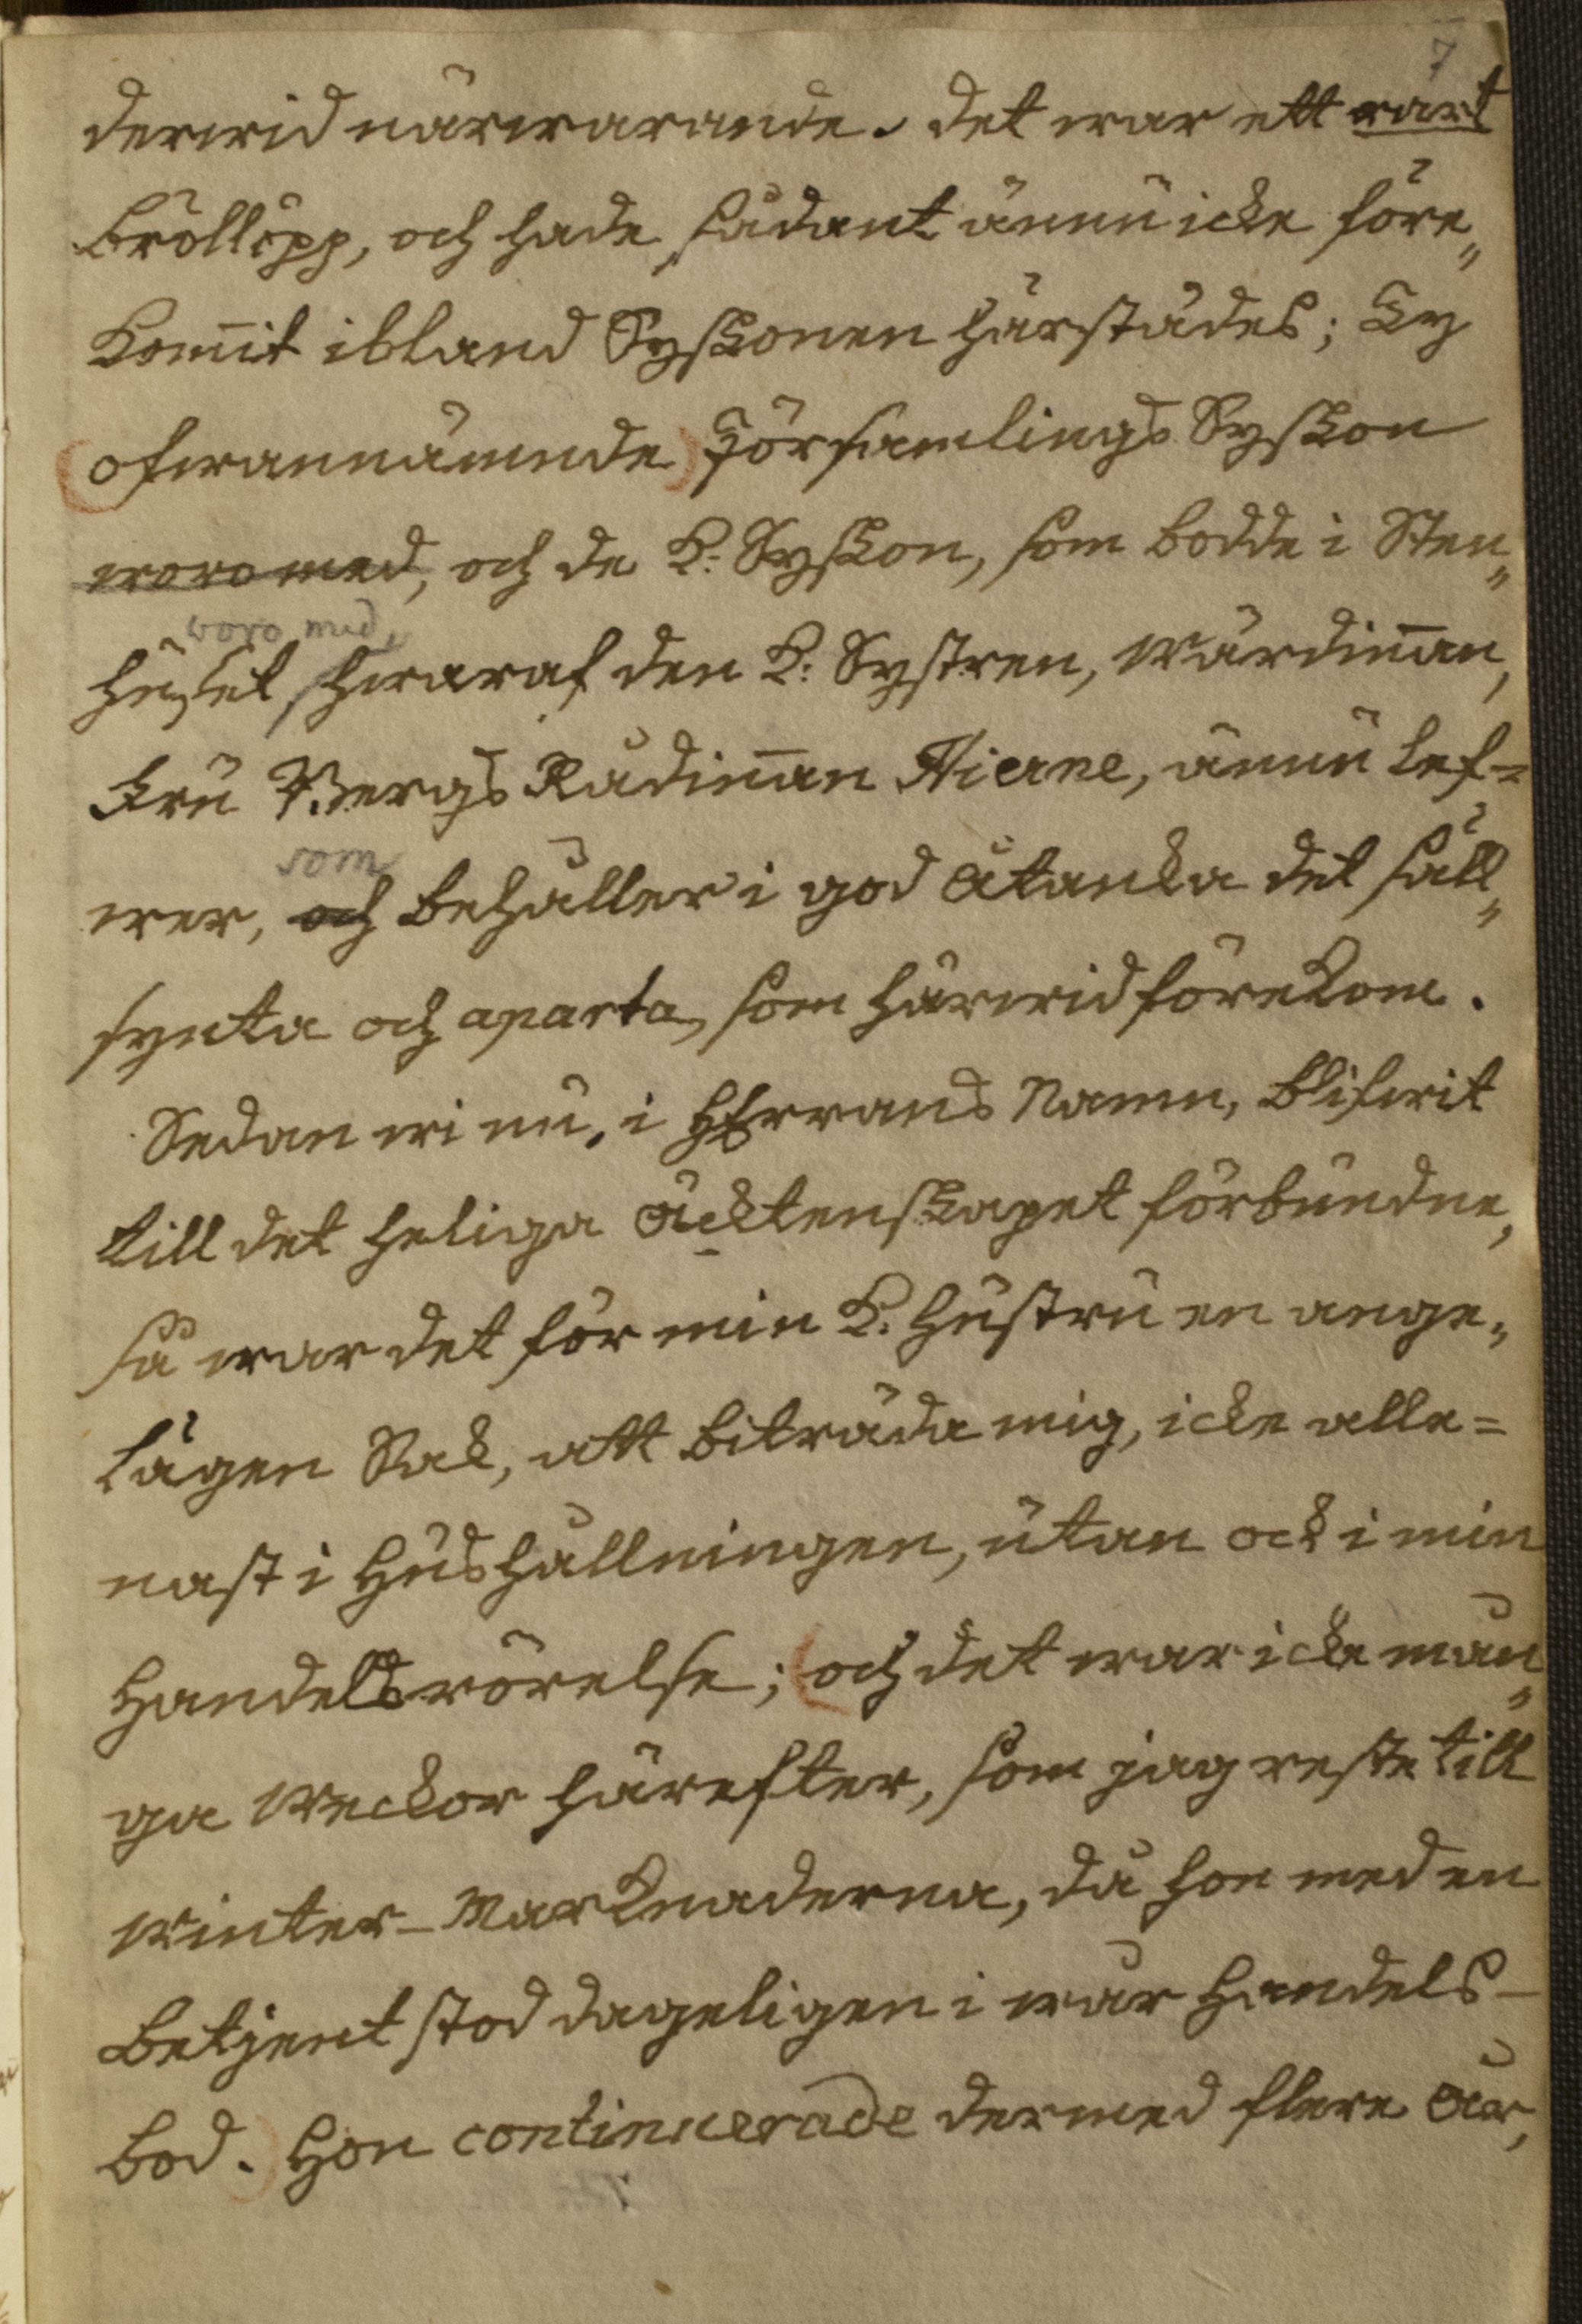 7
derwid närwarande. Det war ett rart
Bröllopp, och hade sådant ännu icke före„
Kommit ibland Syskonen härstädes; Ty
(ofwannämnde) Församlings Syskon
woro med, och de K: Syskon, som bodde i Sten„
voro med,
huset, hwaraf den K: Systren, Wärdinnan,
Fru Bergs Rådinnan Hierne, ännu Lef=
som
wer, och behåller i god Åtanka det säll„
synta och aparta, som härwid förekom.
Sedan wi nu, i HErrans Namn, blifwit
till det heliga Äcktenskapet förbundne,
så war det för min K. Hustru en ange„
lägen Sak, att biträda mig, icke alle=
nast i Hushållningen, utan ock i min
Handelsrörelse; (och det war icke mån„
ga Weckor härefter, som jag reste till
Winter-Marknaderna, då hon med en
Betjent stod dageligen i wår Handels-
bod.) Hon continuerade dermed flere år,